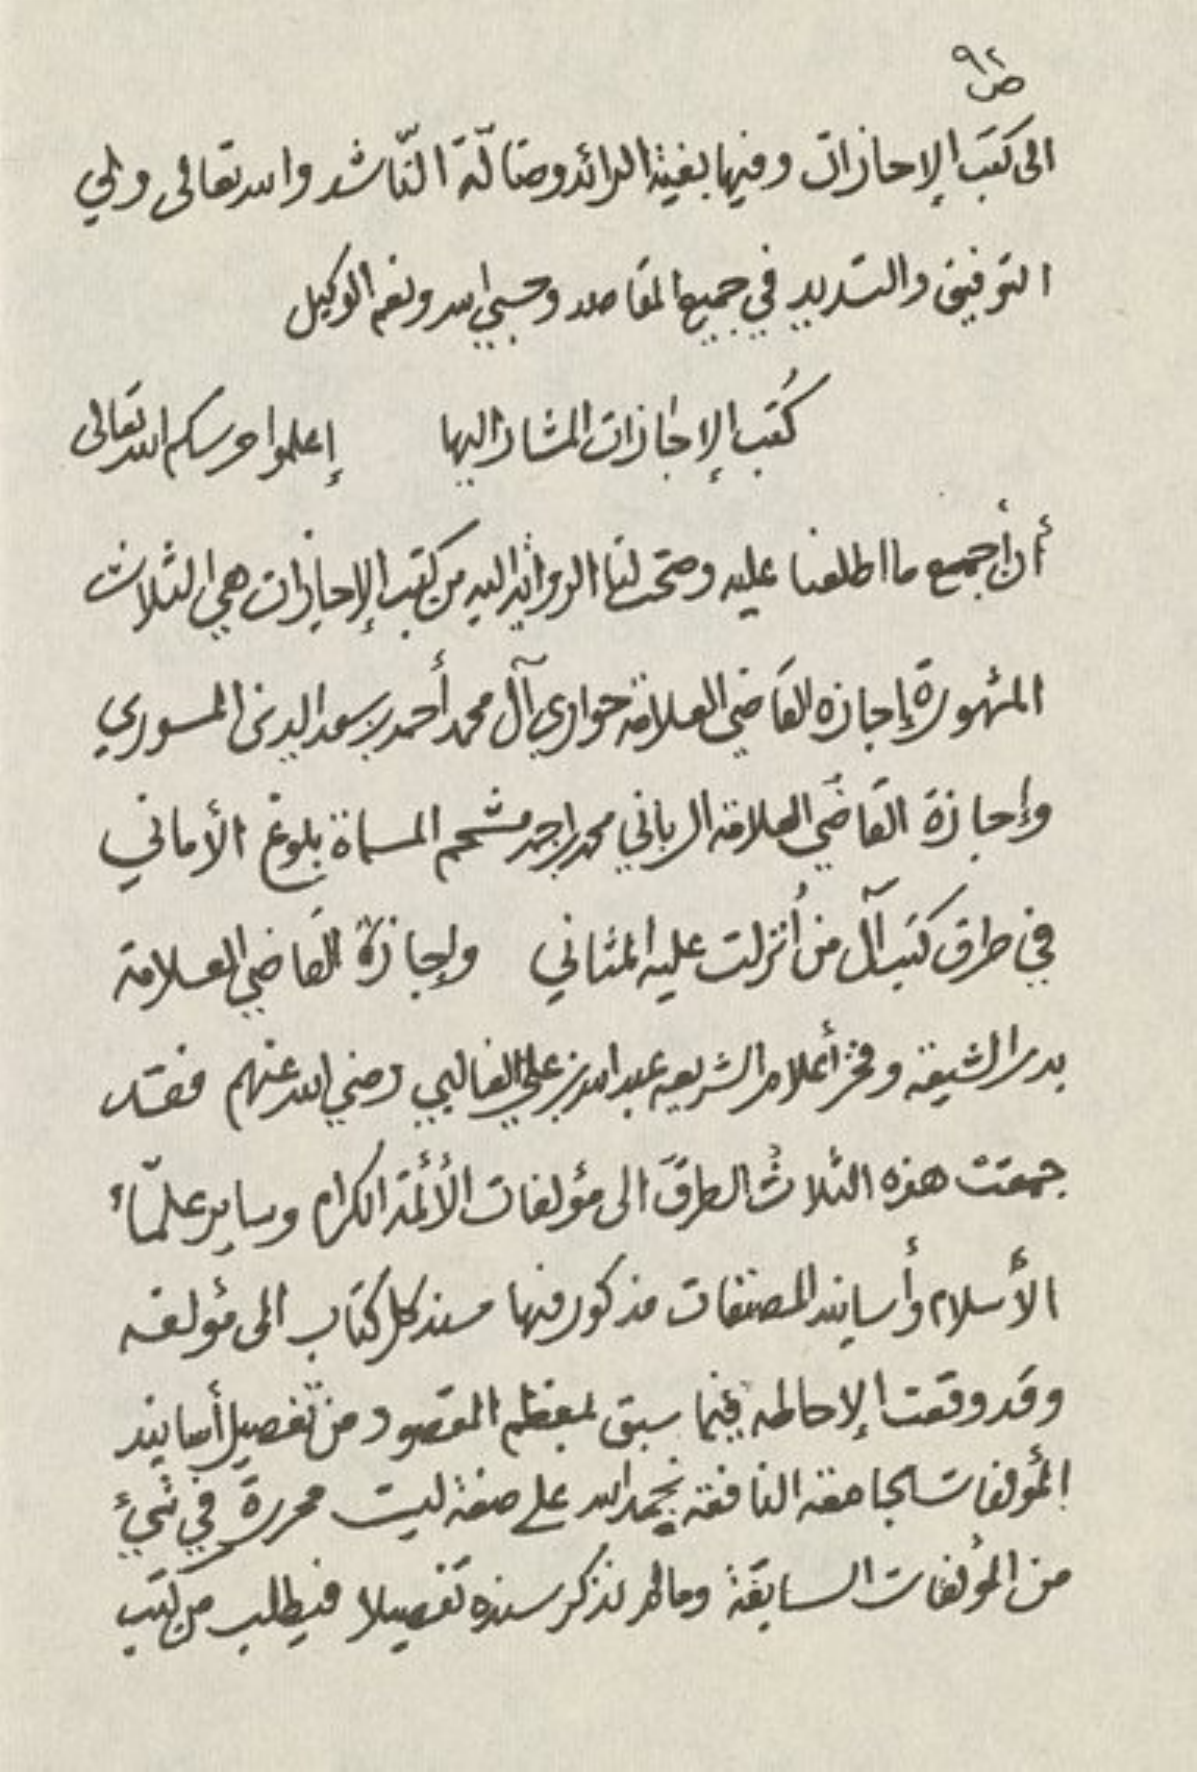 ص ٩٢
الى كتب الإجازات وفيها بغية الرائد وضالّة النّاشد والله تعالى ولي
التوفيق والتسديد في جميع المقاصد وحسبي الله ونعم الوكيل
كُتب الإجازات المشار اليها إعلموا حرسكم الله تعالى
أن جميع ما اطلعنا عليه وصحت لنا الرواية اليه من كتب الإجازات هي الثلاث
المشهورة إجازة القاضي العلامة حواري آل محمد أحمد بن سعد الدين المسوري
وإجازة القاضي العلامة الرباني محمد بن احمد مشحم المسماة بلوغ الأماني
في طرق كتب آل من أُنزلت عليه المثاني وإجازة القاضي العلامة
بدر الشيعة وفخر أعلام الشريعه عبدالله بن علي الغالبي رضي الله عنهم فقد
جمعت هذه الثلاث الطرق الى مؤلفات الأئمة الكرام وساير علماء
الأسلام وأسانيد المصنفات مذكور فيها سند كل كتاب الى مؤلفه
وقد وقعت الإحاطه فيما سبق بمعظم المقصود من تفصيل أسانيد
المؤلفات الجامعة النافعة بحمد الله على صفة ليست محررة في شيء
من المؤلفات السابقة وما لم نذكر سنده تفصيلا فيطلب من كتب